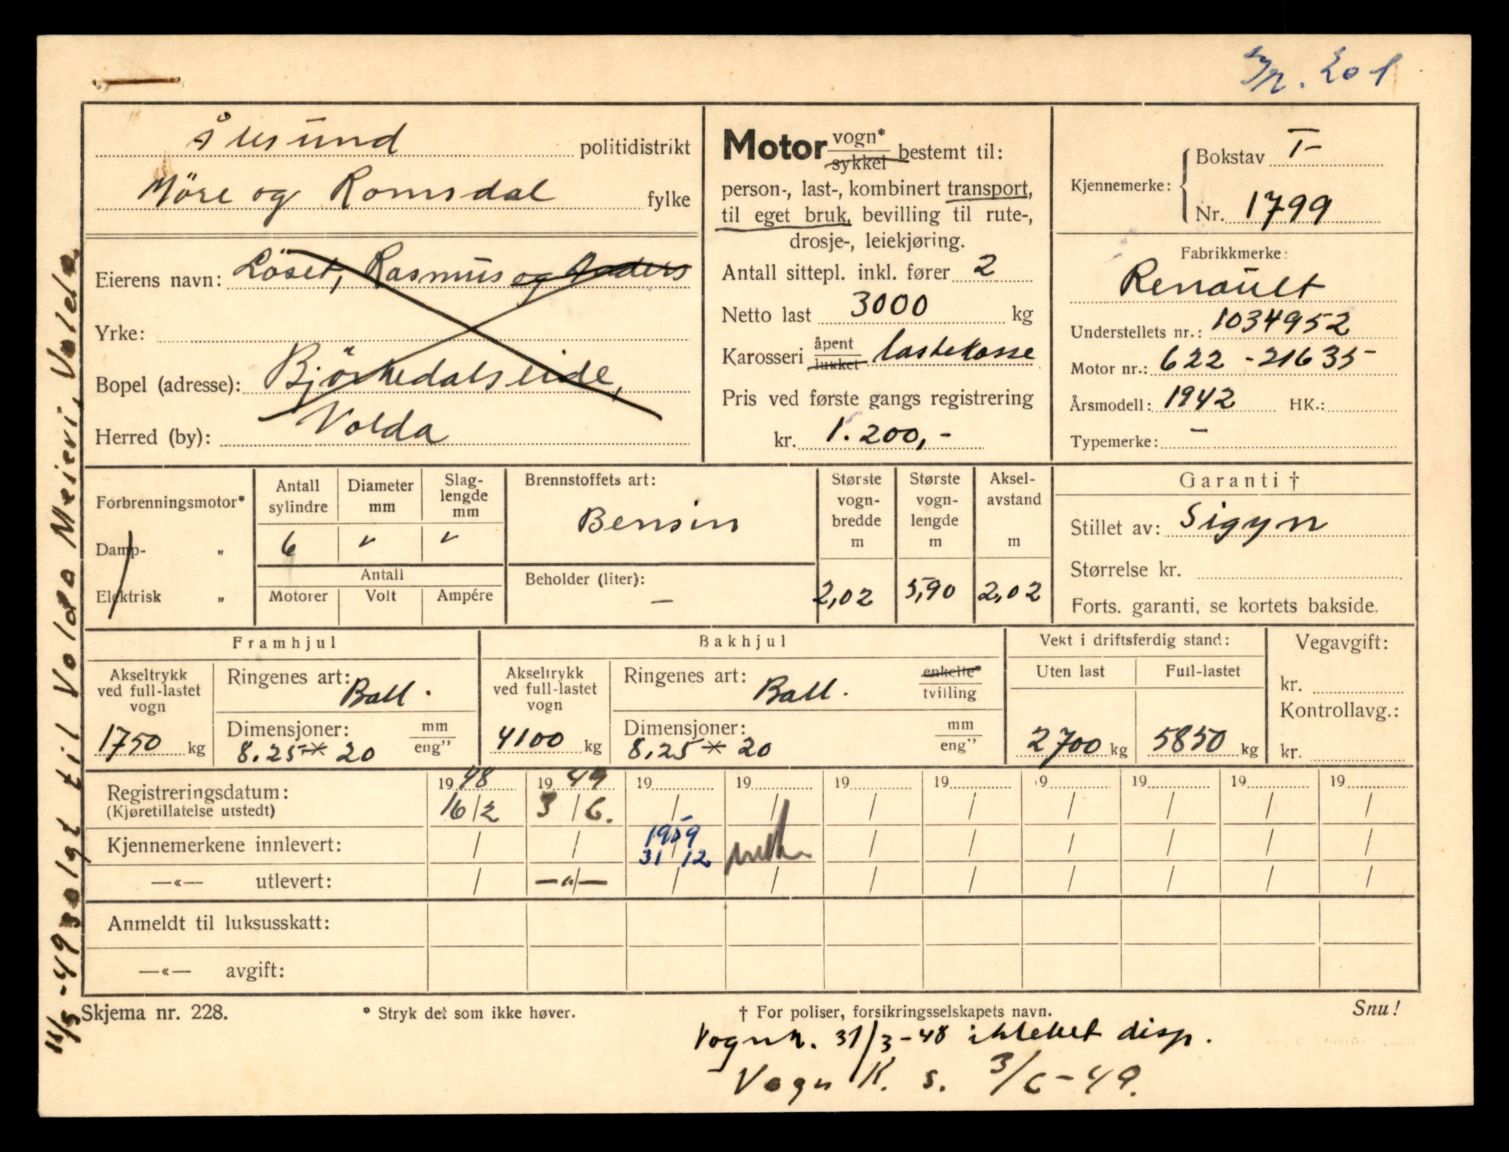 Ålesund politidistrikt
Möre og Romsdal fylke
Eierens navn: Löset, Rasmus og Anders
Yrke:
Bopel (adresse): Björkedalseide,
Herred (by): Volda
Motor vogn* sykkel bestemt til:
person-, last-, kombinert transport,
til eget bruk, bevilling til rute-,
drosje-, leiekjøring.
Antall sittepl. inkl. fører 2
Netto last 3000 kg
Karosseri åpent lukket lastekasse
Pris ved første gangs registrering
kr. 1.200,-
Kjennemerke: Bokstav T-
Nr. 1799
Fabrikkmerke:
Renault
Understellets nr.: 1034952
Motor nr.: 622 - 21635
Årsmodell: 1942 HK.:
Typemerke: —
Forbrenningsmotor*
Damp- „
Elektrisk „
Antall sylindre
6
Diameter mm
"
Slag-lengde mm
"
Antall
Motorer Volt Ampére
Brennstoffets art:
Bensin
Beholder (liter):
—
Største vogn-bredde m
2,02
Største vogn-lengde m
5,90
Aksel-avstand m
2,02
Garanti †
Stillet av: Sigyn
Størrelse kr.
Forts. garanti, se kortets bakside.
Framhjul
Akseltrykk ved full-lastet vogn
1750 kg
Ringenes art: Ball.
Dimensjoner: mm eng"
8.25 * 20
Bakhjul
Akseltrykk ved full-lastet vogn
4100 kg
Ringenes art: Ball. enkelte* tvilling
Dimensjoner: mm eng"
8,25 * 20
Vekt i driftsferdig stand:
Uten last Full-lastet
2700 kg 5850 kg
Vegavgift:
kr.
Kontrollavg.:
kr.
1948 1949 19 19 19 19 19 19 19 19
Registreringsdatum:
(Kjøretillatelse utstedt)
16/2 3/6. / / / / / / / /
Kjennemerkene innlevert: / / 1959 31/12 / / / / / / /
—«— utlevert: / —"— / / / / / / / /
Anmeldt til luksusskatt:
—«— avgift:
Skjema nr. 228. * Stryk det som ikke høver. † For poliser, forsikringsselskapets navn. Snu!
Vognk. 31/3-48 ikke bet disp.
Vogn K. s. 3/6-49.
11/5-49 solgt til Volda Meieri, Volda